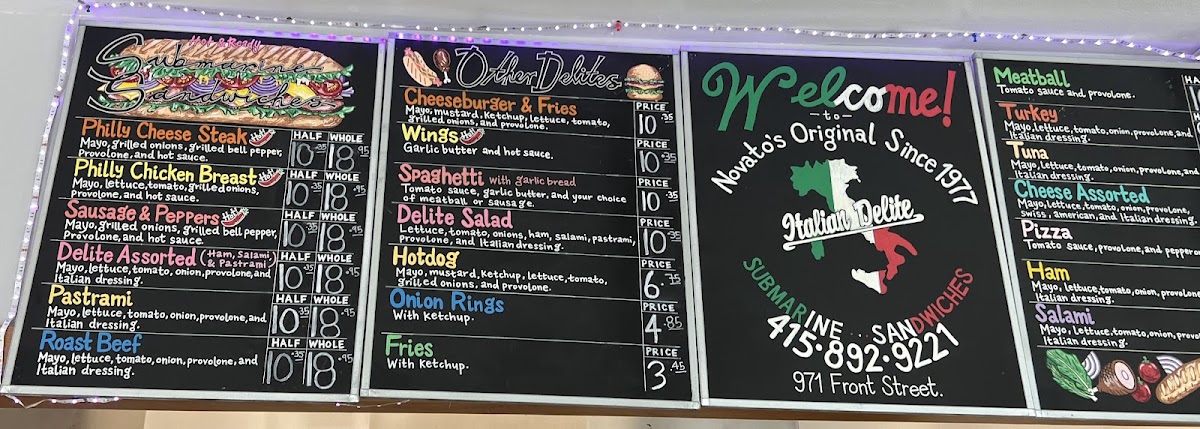 Hot & Ready
Submarine
Sandwiches
Philly Cheese Steak Hot!
HALF WHOLE
Mayo, grilled onions, grilled bell pepper,
Provolone, and hot sauce.
10.35 18.95
Philly Chicken Breast Hot!
HALF WHOLE
Mayo, lettuce, tomato, grilled onions,
Provolone, and hot sauce.
10.35 18.95
Sausage & Peppers Hot!
HALF WHOLE
Mayo, grilled onions, grilled bell pepper,
Provolone, and hot sauce.
10.35 18.95
Delite Assorted (Ham, Salami
& Pastrami)
HALF WHOLE
Mayo, lettuce, tomato, onion, provolone, and
Italian dressing.
10.35 18.95
Pastrami
HALF WHOLE
Mayo, lettuce, tomato, onion, provolone, and
Italian dressing.
10.35 18.95
Roast Beef
HALF WHOLE
Mayo, lettuce, tomato, onion, provolone, and
Italian dressing.
10.35 18.95
Other Delites
Cheeseburger & Fries
PRICE
Mayo, mustard, Ketchup, lettuce, tomato,
grilled onions, and provolone.
10.35
Wings Hot!
PRICE
Garlic butter and hot sauce.
10.35
Spaghetti with garlic bread
PRICE
Tomato sauce, garlic butter, and your choice
of meatball or sausage.
10.35
Delite Salad
PRICE
Lettuce, tomato, onions, ham, salami, pastrami,
provolone, and Italian dressing.
10.35
Hotdog
PRICE
Mayo, mustard, Ketchup, lettuce, tomato,
grilled onions, and provolone.
6.75
Onion Rings
PRICE
With Ketchup.
4.85
Fries
PRICE
With Ketchup.
3.45
Welcome!
-to-
Novato's Original Since 1977
Italian Delite
SUBMARINE...SANDWICHES
415.892.9221
971 Front Street.
Meatball
Tomato sauce and, provolone.
Turkey
Mayo, lettuce, tomato, onion, provolone, and
Italian dressing.
Tuna
Mayo, lettuce, tomato, onion, provolone, and
Italian dressing.
Cheese Assorted
Mayo, lettuce, tomato, onion, provolone,
Swiss, american, and Italian dressing.
Pizza
Tomato sauce, provolone, and
Ham
Mayo, lettuce, tomato, onion, provolone,
Italian dressing.
Salami
Mayo, lettuce, tomato, onion,
Italian dressing.